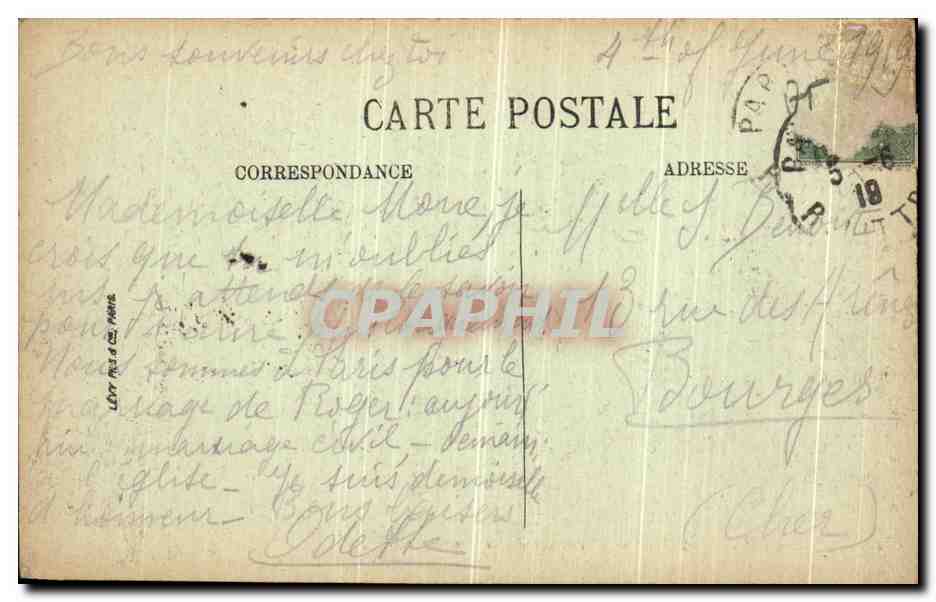 Bons souvenirs chez toi
4th of June 1919
CARTE POSTALE
CORRESPONDANCE
ADRESSE
Mademoiselle je
crois que tu m'oublies
j'attends
pour
Nous sommes à Paris pour le
mariage de Roger: aujourd'
hui mariage civil - demain
à l'église - Je suis demoiselle
d'honneur - Bons baisers
Odette
Melle S.
13 rue des
Bourges
(Cher)
LÉVY FILS & Cie, PARIS
PAR
5 -6
19
CPAPHIL